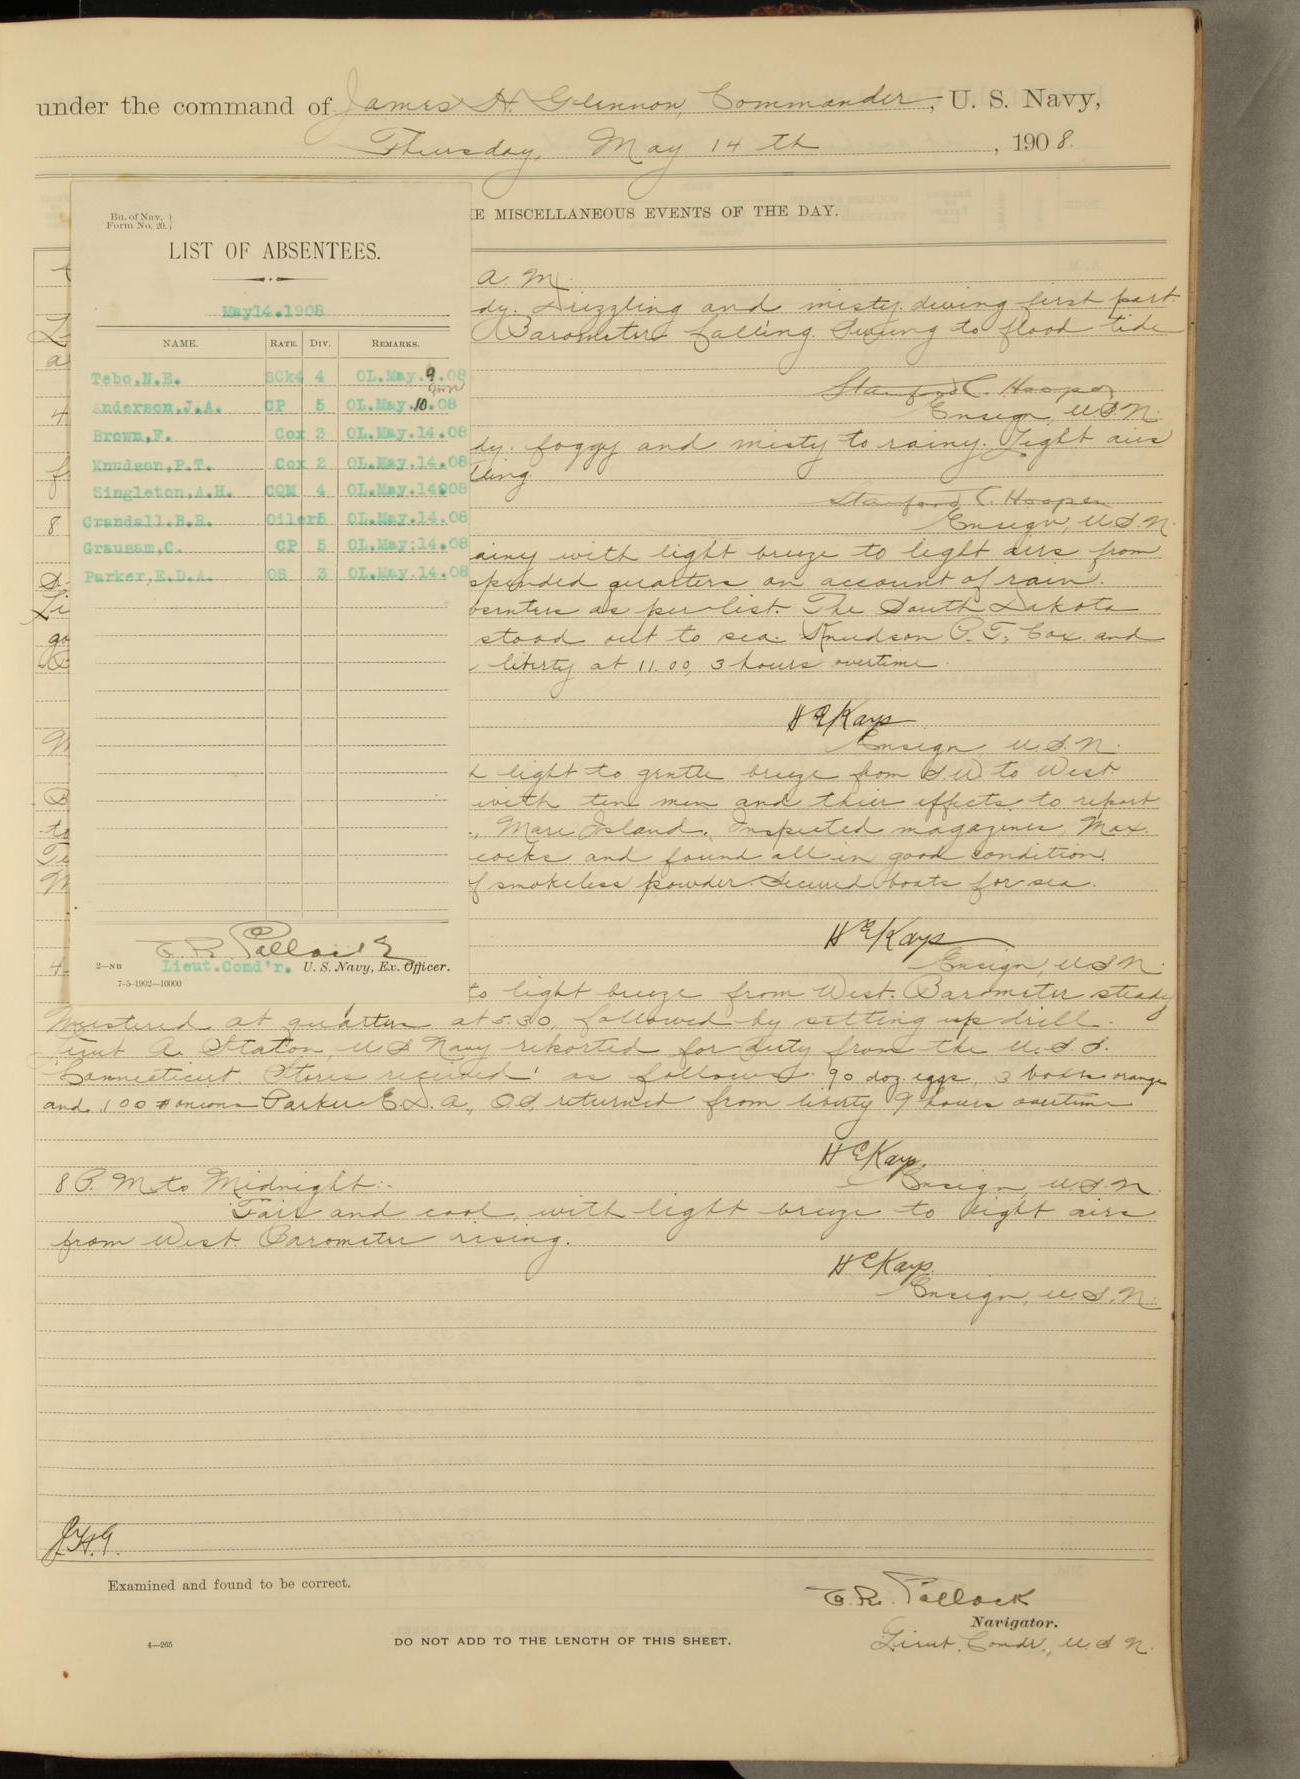 under the command of James H. Glennon, Commander, U. S. Navy,
Thursday, May 14 th, 1908.
Bu. of Nav.
Form No. 20.
LIST OF ABSENTEES.
May14.1908
NAME. RATE. DIV. REMARKS.
Tebo,N.E. SCk4 4 OL.May.9.08
Anderson.J.A. CP 5 OL.May.10.08
Brown,F. Cox 3 OL.May.14.08
Knudson,P.T. Cox 2 OL.May.14.08
Singleton,A.H. CQM 4 OL.May.14.08
Crandall.B.R. Oiler5 OL.May.14.08
Grausam,C. CP 5 OL.May.14.08
Parker,E.D.A. OS 3 OL.May.14.08
T. R. Pollock
2—NB Lieut.Comd'r. U. S. Navy, Ex. Officer.
7-5-1902—10000
E MISCELLANEOUS EVENTS OF THE DAY.
A. M.
dy. Drizzling and misty during first part
Barometer falling. Swung to flood tide
Stanford C. Hooper
Ensign, U.S.N.
dy. foggy and misty to rainy. Light airs
lling
Stanford C. Hooper
Ensign, U.S.N.
ainy with light breeze to light airs from
spended quarters on account of rain.
bsentees as per list. The South Dakota
stood out to sea. Knudson P. T., Cox. and
liberty at 11.00, 3 hours overtime.
H E Kays
Ensign, U.S.N.
h light to gentle breeze from S.W. to West.
with ten men and their effects to report
, Mare Island. Inspected magazines, Mag.
cocks and found all in good condition.
f smokeless powder. Secured boats for sea.
H E Kays
Ensign, U.S.N.
to light breeze from West. Barometer steady
Mustered at quarters at 5.30, followed by setting up drill.
Lieut A. Staton, U.S. Navy reported for duty from the U.S.S.
Connecticut. Stores received as follows: 90 doz. eggs, 3 boxes oranges
and 100 # onions Parker E.D.A., OS, returned from liberty 9 hours overtime
H E Kays.
Ensign, U.S.N.
8 P. M. to Midnight:-
Fair and cool, with light breeze to light airs
from West. Barometer rising.
H E Kays.
Ensign, U.S.N.
J.H.G.
Examined and found to be correct.
T. R. Pollock
Navigator.
Lieut. Comdr., U.S.N.
4—265
DO NOT ADD TO THE LENGTH OF THIS SHEET.